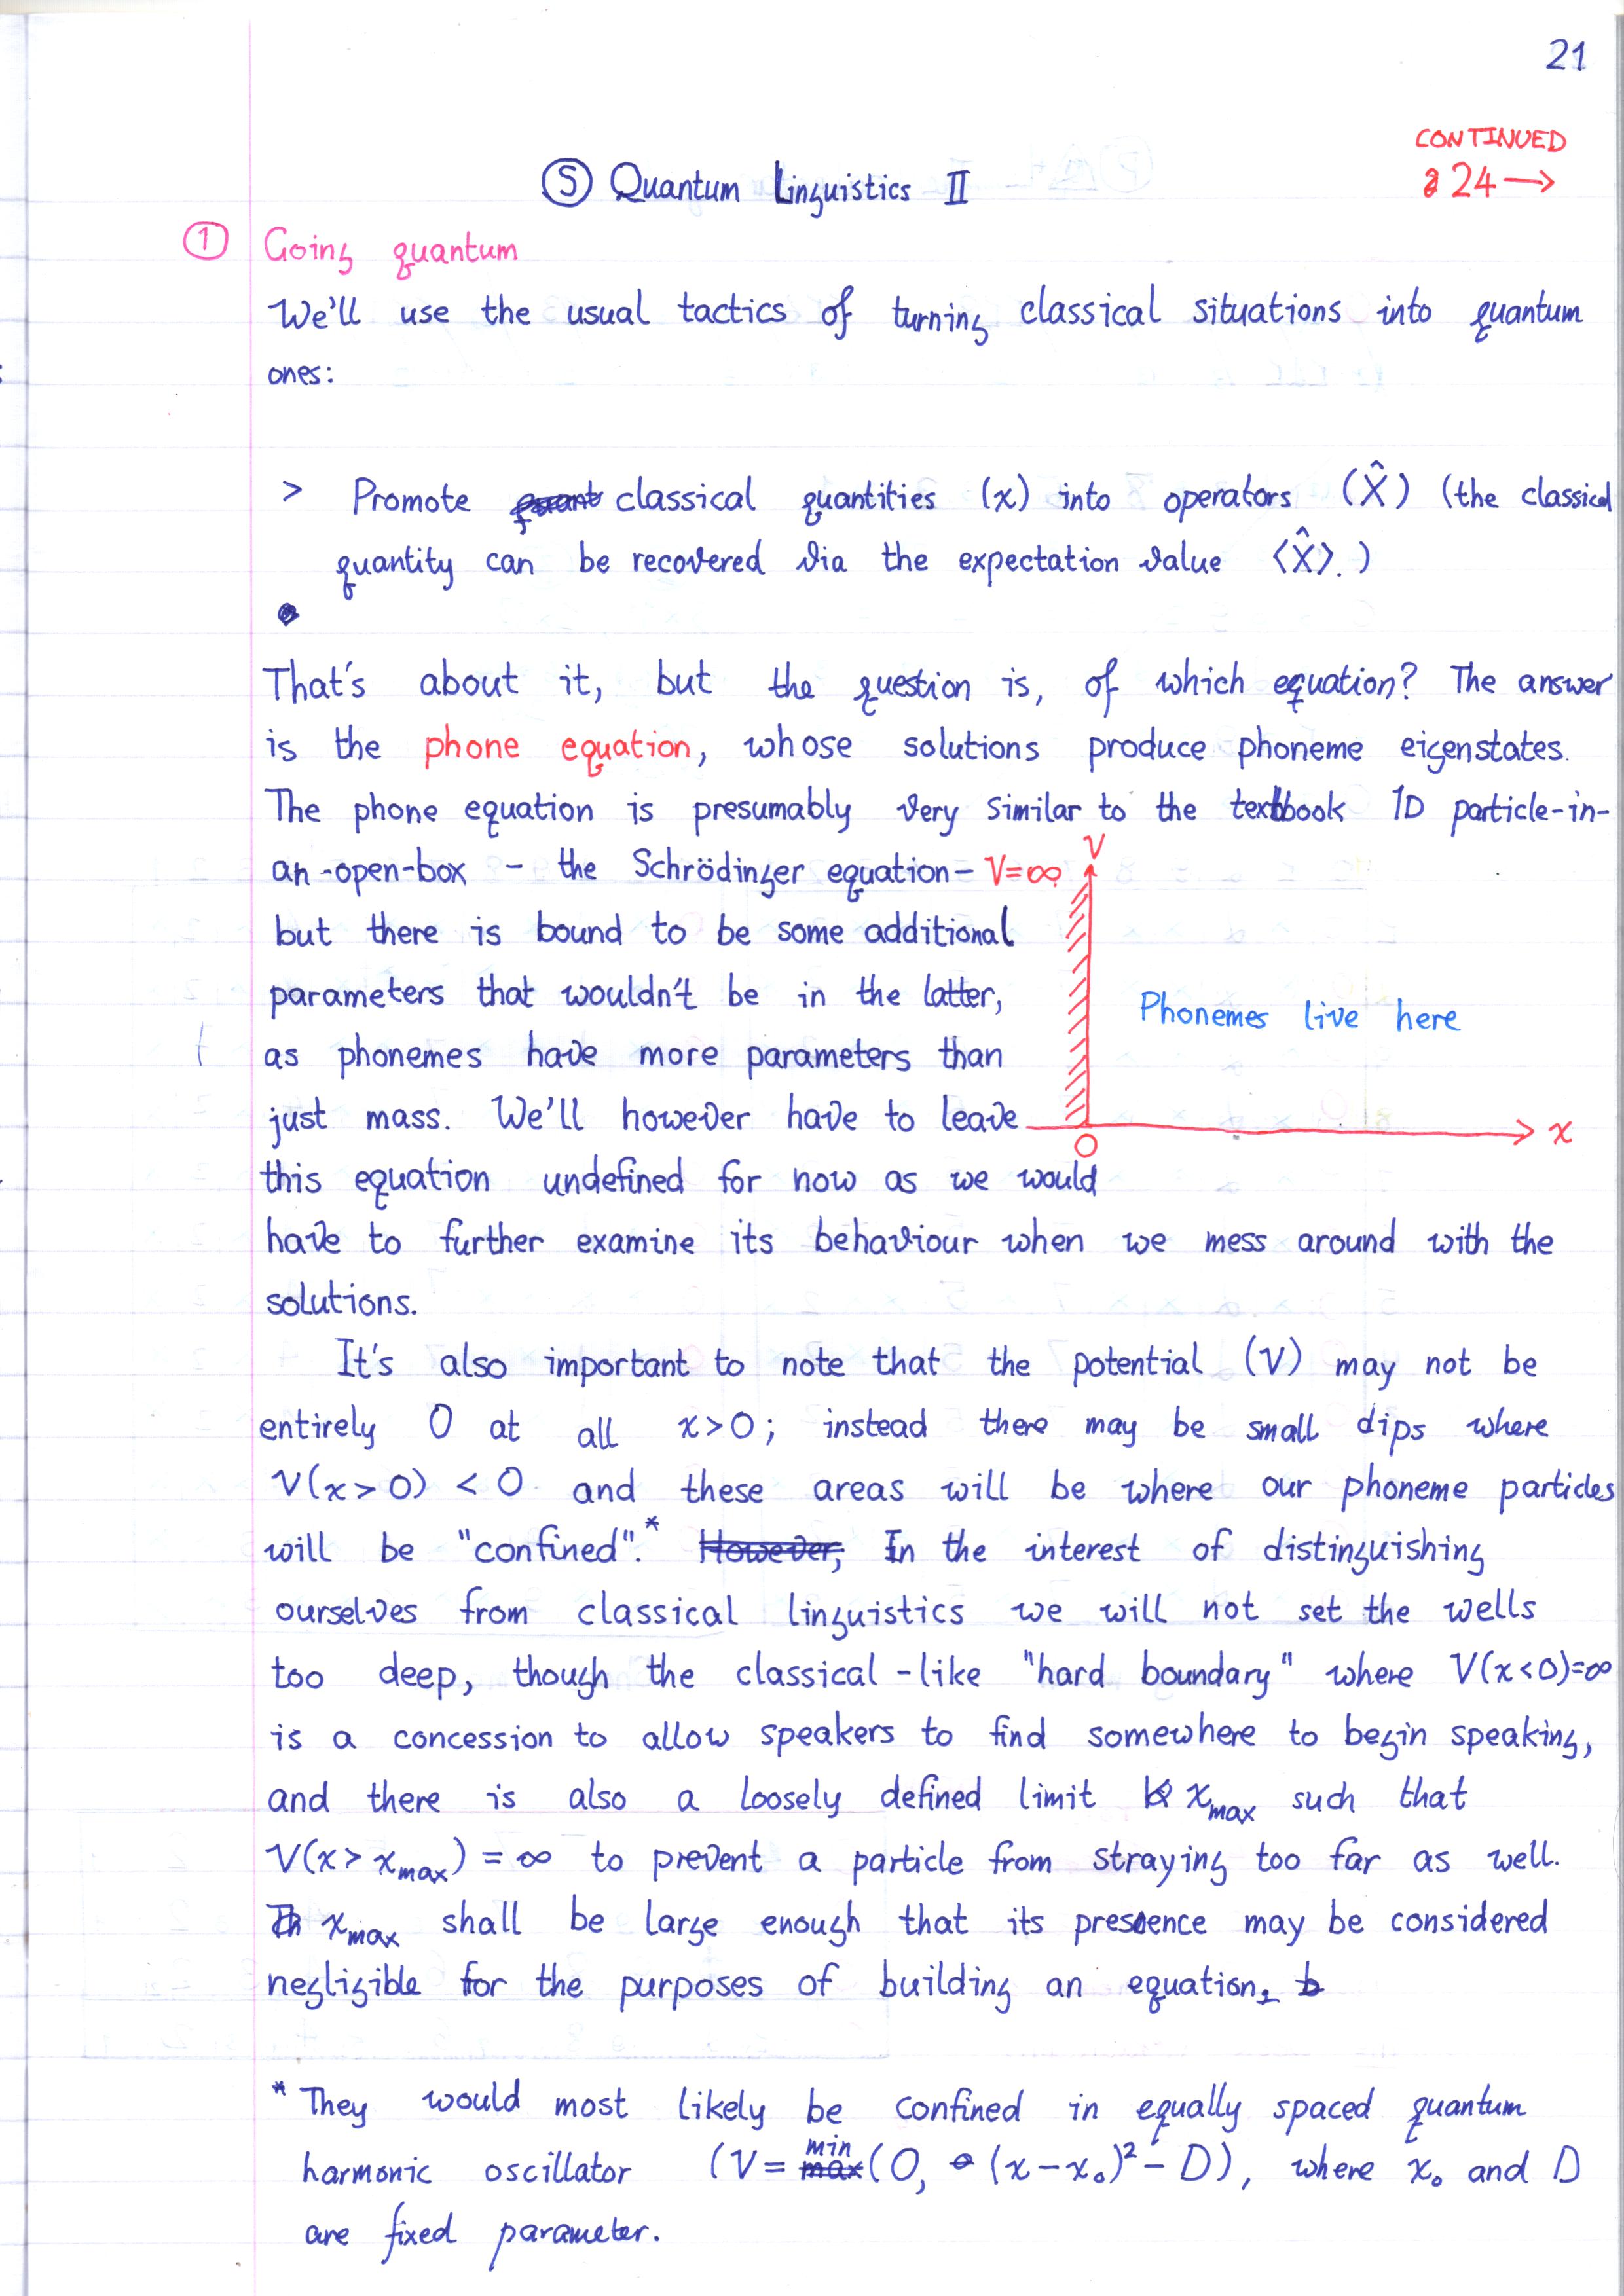 21
CONTINUED
24 →
Ⓢ Quantum Linguistics II
① Going quantum
We'll use the usual tactics of turning classical situations into quantum
ones:
> Promote quant classical quantities (x) into operators (X̂) (the classical
quantity can be recovered via the expectation value ⟨X̂⟩.)
That's about it, but the question is, of which equation? The answer
is the phone equation, whose solutions produce phoneme eigenstates.
The phone equation is presumably very similar to the textbook 1D particle-in-
an-open-box – the Schrödinger equation –
but there is bound to be some additional
parameters that wouldn't be in the latter,
as phonemes have more parameters than
just mass. We'll however have to leave
this equation undefined for now as we would
have to further examine its behaviour when we mess around with the
solutions.
V
V=∞
Phonemes live here
x
O
It's also important to note that the potential (V) may not be
entirely 0 at all x>0; instead there may be small dips where
V(x>0) < 0 and these areas will be where our phoneme particles
will be "confined".* However, In the interest of distinguishing
ourselves from classical linguistics we will not set the wells
too deep, though the classical-like "hard boundary" where V(x<0)=∞
is a concession to allow speakers to find somewhere to begin speaking,
and there is also a loosely defined limit x_max such that
V(x> x_max) = ∞ to prevent a particle from straying too far as well.
x_max shall be large enough that its presence may be considered
negligible for the purposes of building an equation.
* They would most likely be confined in equally spaced quantum
harmonic oscillator (V = max min (0, (x-x₀)² - D), where x₀ and D
are fixed parameter.